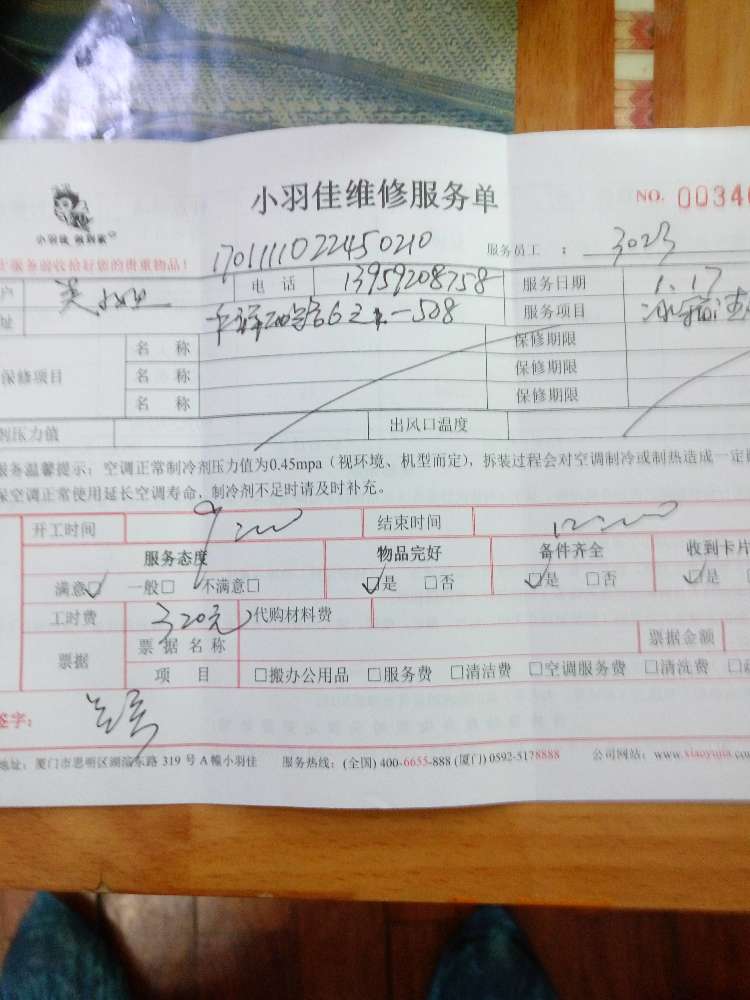 小羽佳维修服务单
NO. 00346
小羽佳 做到家
服务验收给好您的贵重物品!
1701111022450210 服务员工 : 3023
户 电话 13959208758 服务日期 1.17
址 508 服务项目
保修项目 名 称 保修期限
名 称 保修期限
名 称 保修期限
剂压力值 出风口温度
服务温馨提示:空调正常制冷剂压力值为0.45mpa(视环境、机型而定),拆装过程会对空调制冷或制热造成一定
保空调正常使用延长空调寿命,制冷剂不足时请及时补充。
开工时间 9:00 结束时间 12:00
服务态度 物品完好 备件齐全 收到卡片
满意☑ 一般□ 不满意□ ☑是 □否 ☑是 □否 ☑是
工时费 320元 代购材料费
票据 票据名称 票据金额
项 目 □搬办公用品 □服务费 □清洁费 □空调服务费 □清洗费
签字:
地址:厦门市思明区湖滨东路 319 号 A 幢小羽佳 服务热线:(全国) 400-6655-888 (厦门) 0592-5178888 公司网站:www.xiaoyujia.co